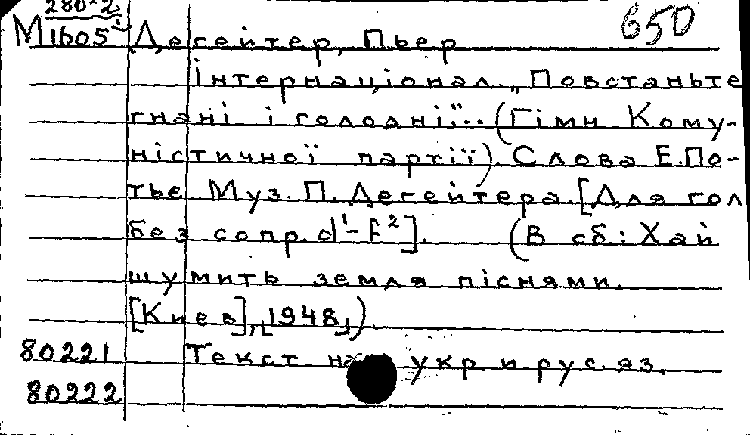 280-2
М1605 Дегейтер, Пьер 650
Інтернаціонал „Повстаньте
гнані і голодні"... (Гімн Кому-
ністичної партії). Слова Е.По-
тье Муз. П. Дегейтера. [Для гол
без сопр. d¹-f²]. (В сб: Хай
шумить земля піснями.
[Киев], [1948])
80221 Текст на укр и рус яз.
80222